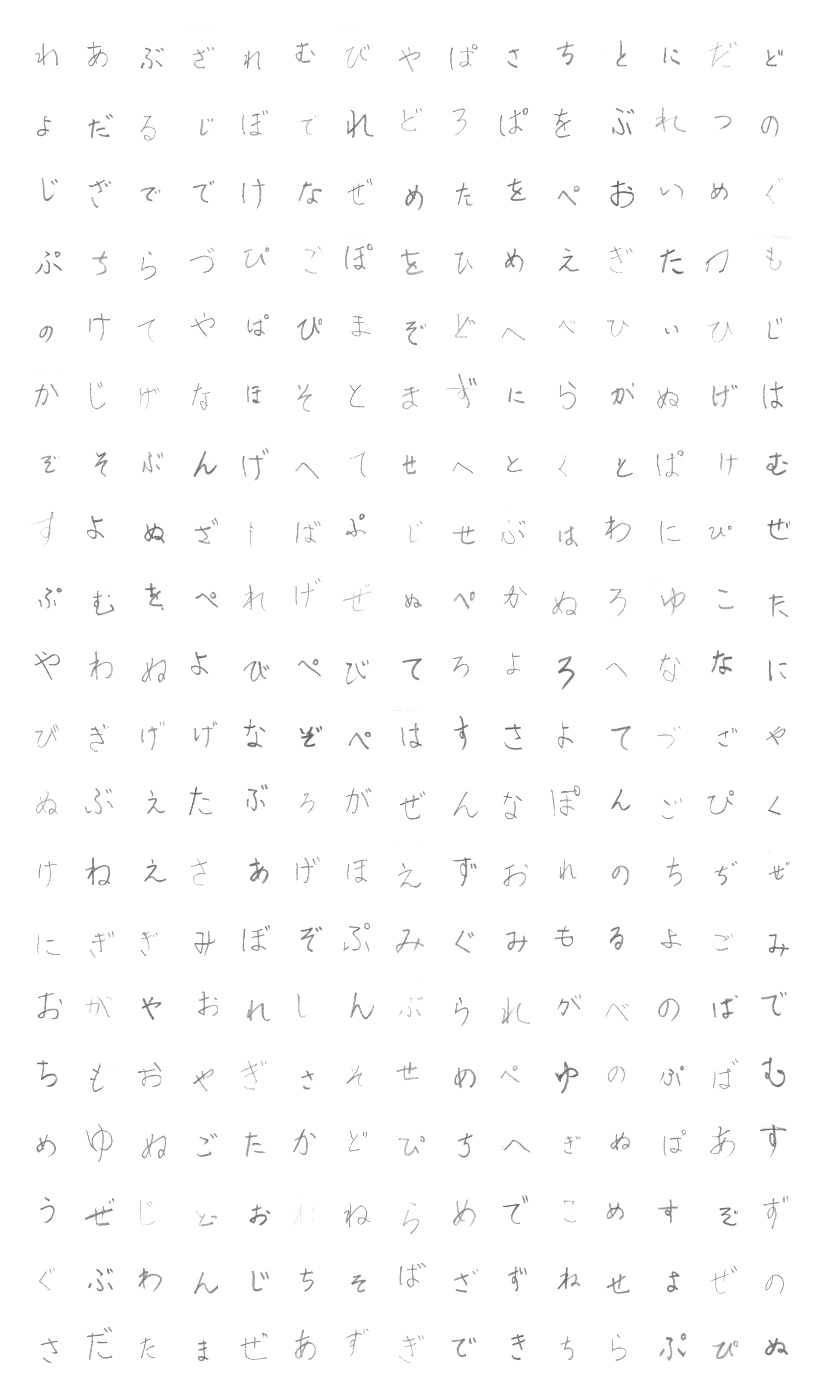 わあぶざれむびやぱさちとにだど
よだるじぼでれどろぱをぶれつの
じざででけなぜめたをぺおいめぐ
ぷちらづぴごぽをひめえぎたつも
のけてやぱぴまぞどへべひいひじ
かじげなほそとまずにらがぬげは
ぞそぶんげへてせへとくとぱけむ
すよぬざばぷじせぶはわにぴぜ
ぷむをぺれげぜぬぺかぬろゆこた
やわぬよびぺびてろよろへななに
びぎげげなぞぺはすさよてづざや
ぬぶえたぶろがぜんなぽんごぴく
けねえさあげほえずおれのちぢぜ
にぎぎみぼぞぷみぐみもるよごみ
おがやおれしんぶられがべのばで
ちもおやぎさそせめぺゆのぷばむ
めゆぬごたかどぴちへぎぬぱあす
うぜじどおねらめでこめすぞず
ぐぶわんじちそばざずねせよぜの
さだたまぜあずぎできちらぷぴぬ